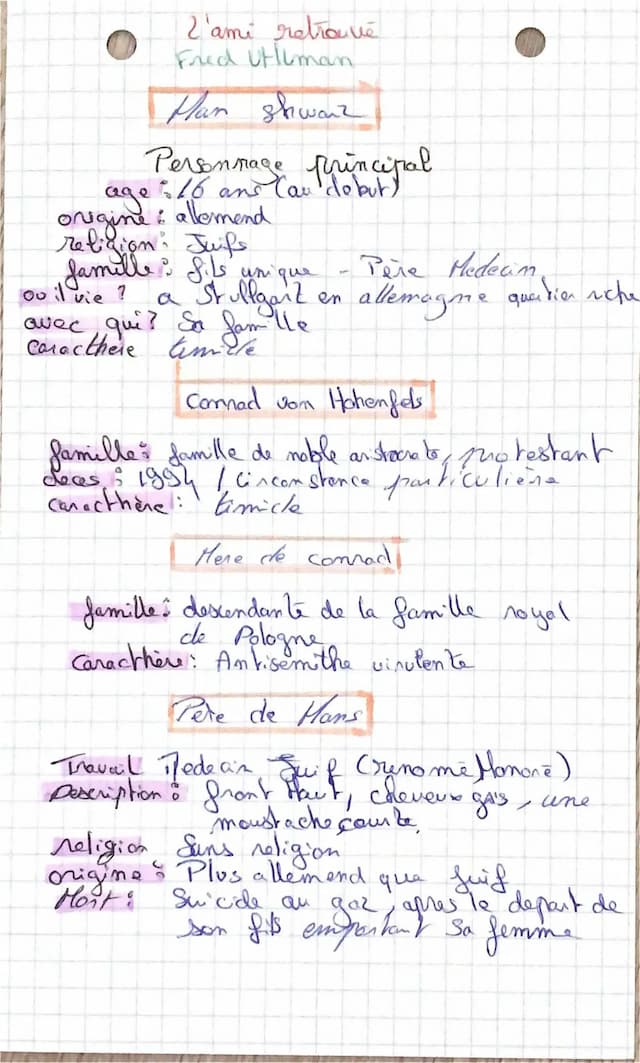 L'ami retrouvé
Fred Uhlman
Han shwarz
Personnage principal
age : 16 ans (au debut)
origine : allemend
religion : Juifs
famille : fils unique - Père Medecin
ou il vie ? a Stuttgart en allemagne quartier riche
avec qui ? Sa famille
caracthere timide
Conrad von Hohenfels
famille : famille de noble aristocrate, protestant
deces : 1994 / Circonstance particulière
caracthère : timide
Mere de conrad
famille : descendante de la famille royal
de Pologne
caracthère : Antisemithe virulente
Père de Hans
Travail Medecin Juif (renomé Honoré)
Description : front Haut, cheveux gris, une
moustache courte.
religion Sans religion
origine : Plus allemend que juif
Mort : Suicide au gaz, apres le depart de
son fils emportant sa femme